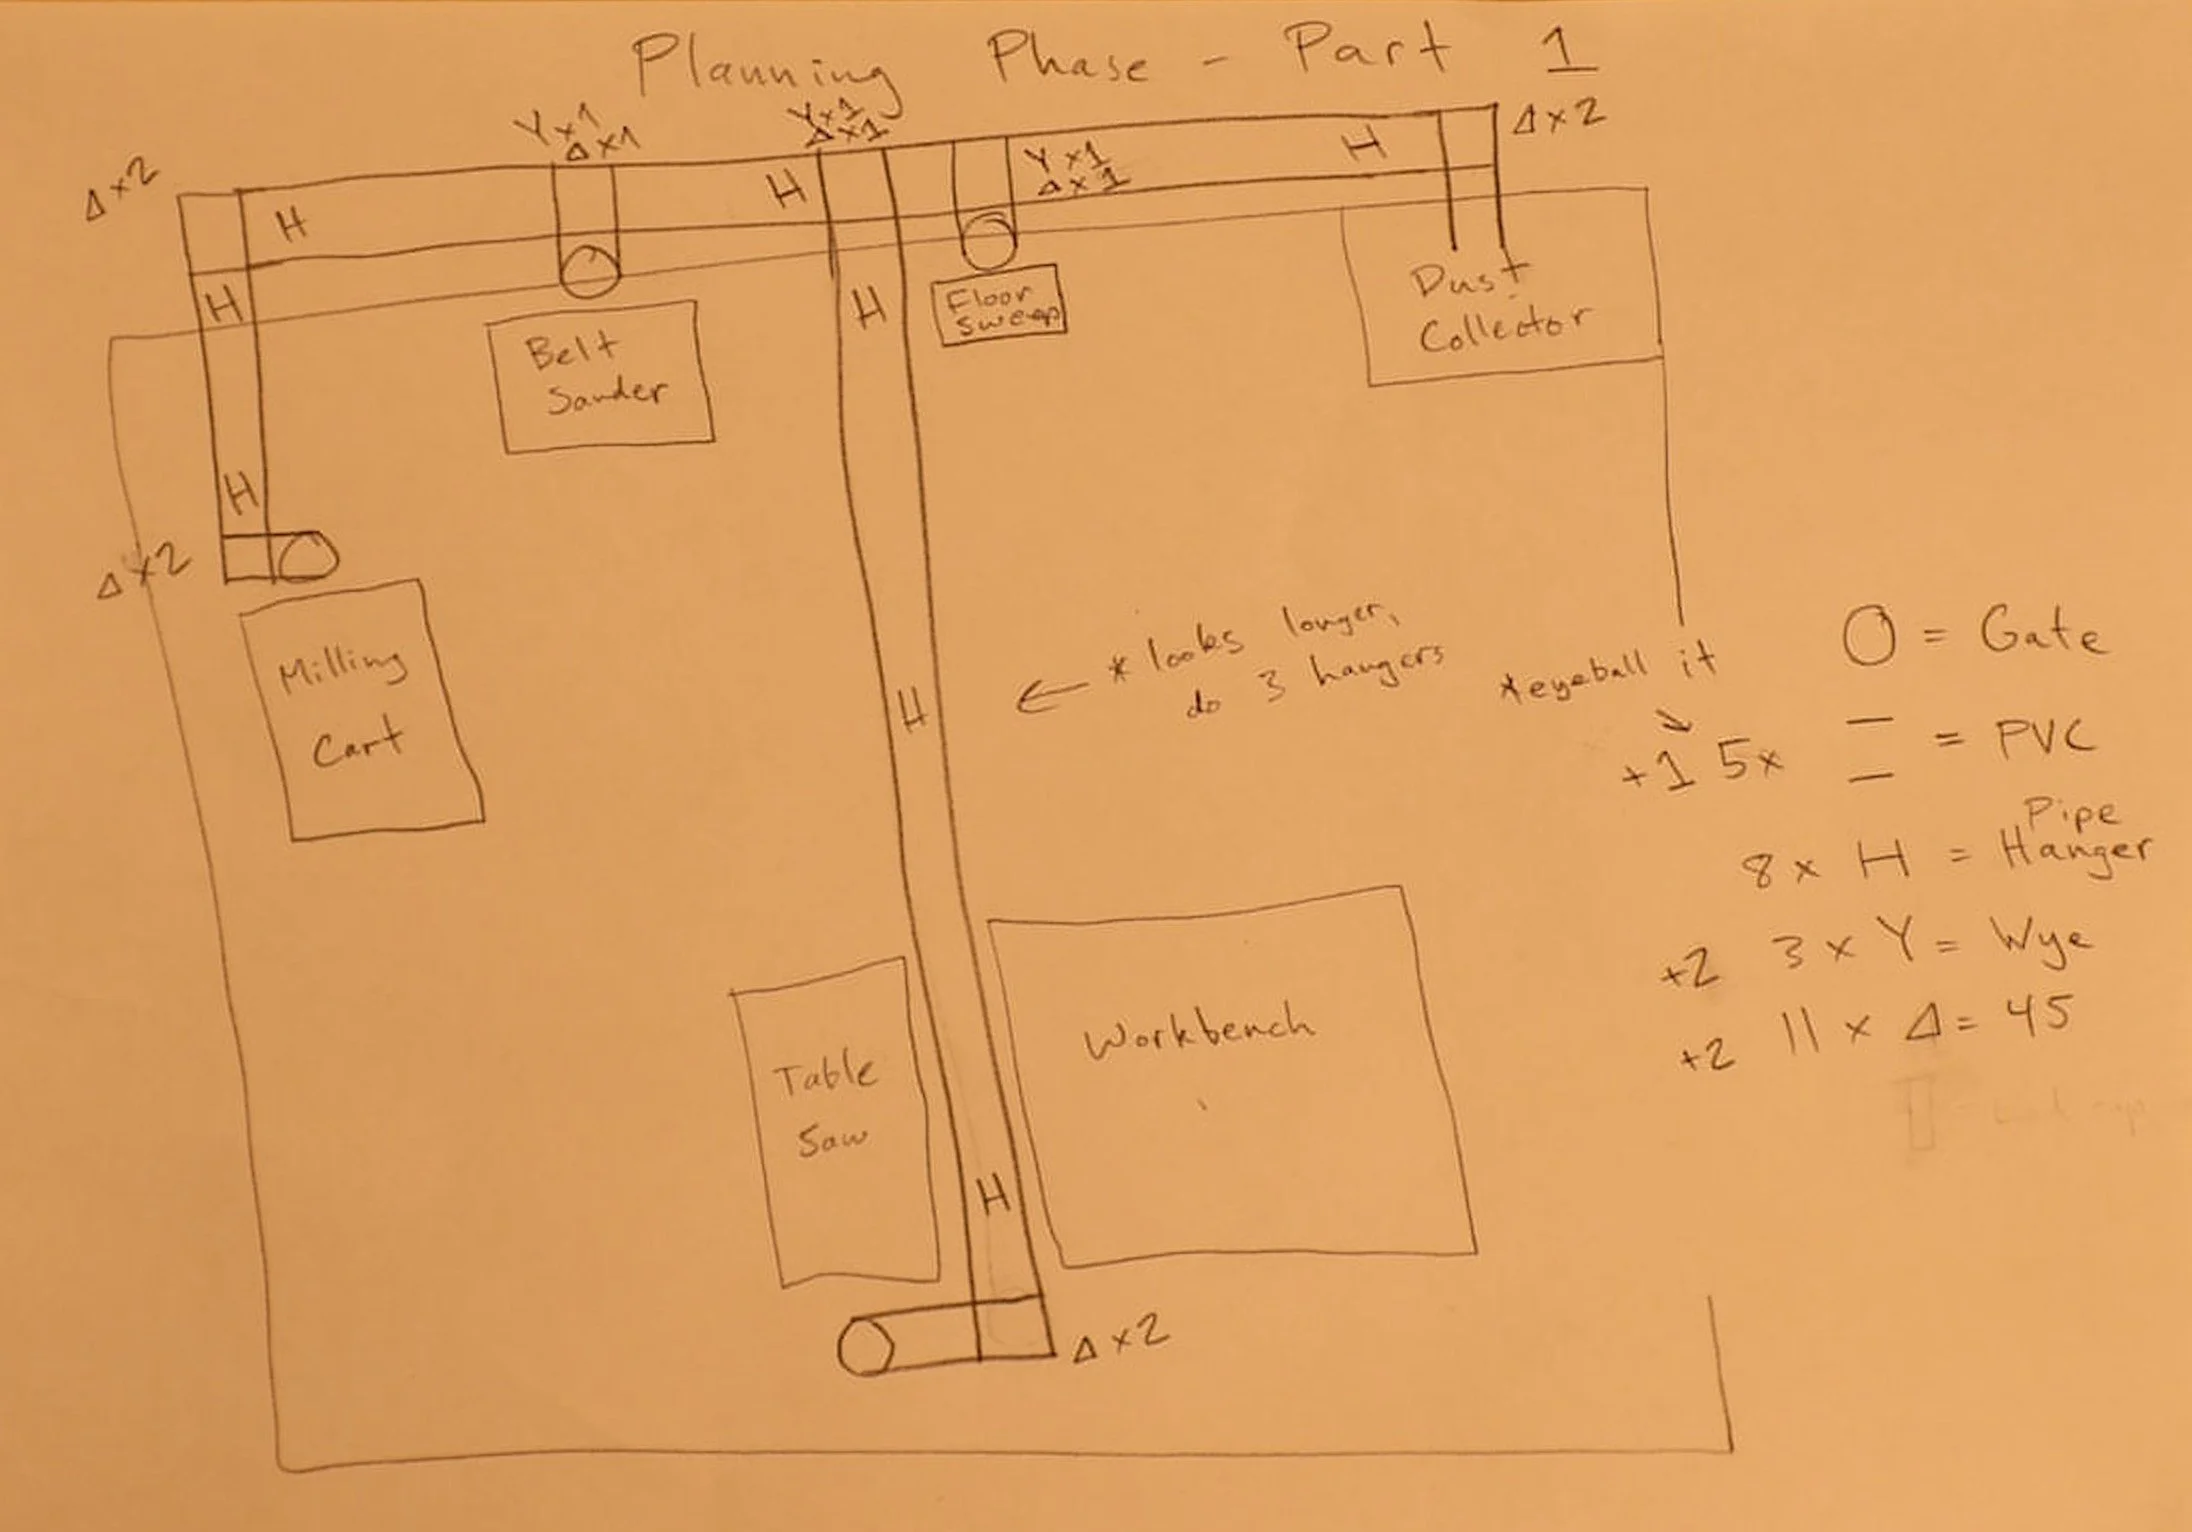 Planning Phase - Part 1
Δ x 2
Y x 1
Δ x 1
Y x 1
Δ x 1
Y x 1
Δ x 1
Δ x 2
H
H
H
H
H
H
Floor
Sweep
Dust
Collector
Belt
Sander
H
Δ x 2
Milling
Cart
H
* looks longer,
do 3 hangers
*eyeball it
O = Gate
+1 5x — — = PVC
8 x H = Pipe
Hanger
+2 3 x Y = Wye
+2 11 x Δ = 45
Table
Saw
Workbench
H
Δ x 2